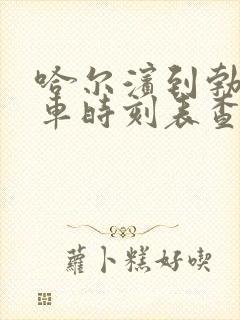 哈尔濱到勃
車時刻表查
蘿卜糕好喫